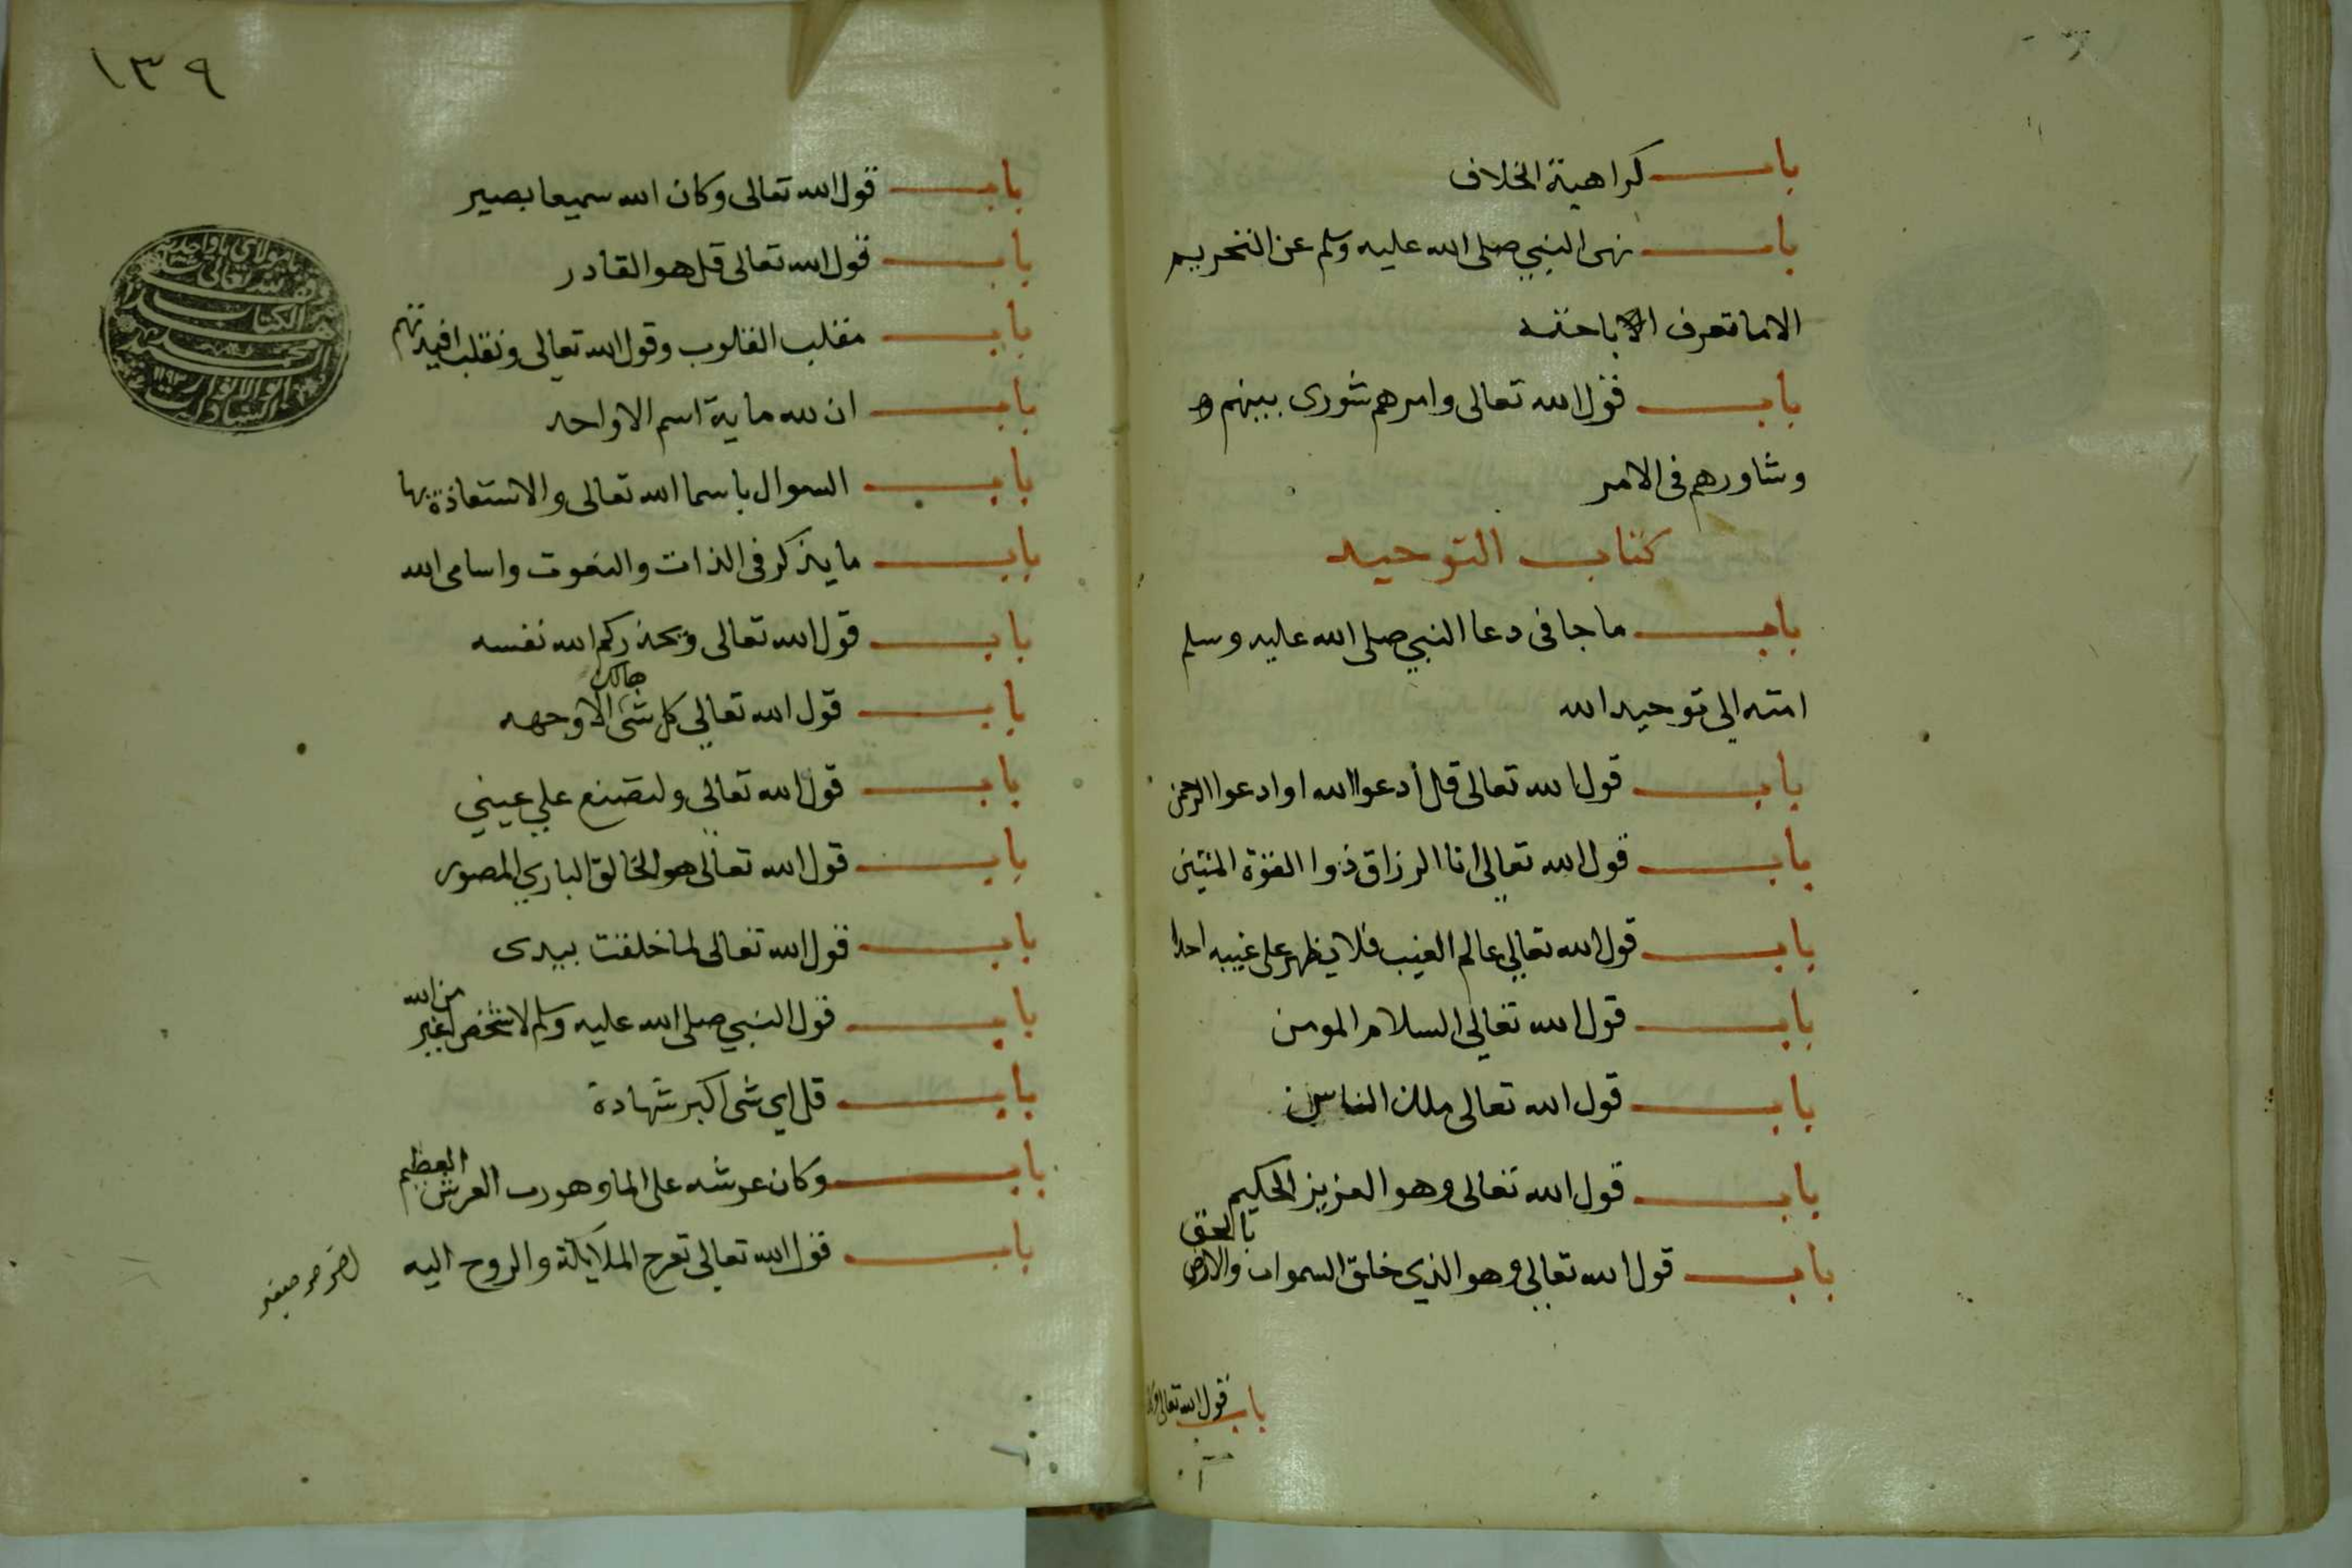 باب كراهية الخلاف
باب نهى النبي صلى الله عليه وسلم عن التحريم
الا ما تعرف اباحته
باب قول الله تعالى وامرهم شورى بينهم و
وشاورهم فى الامر
كتاب التوحيد
باب ما جا فى دعا النبي صلى الله عليه وسلم
امته الي توحيد الله
باب قول الله تعالى قل أدعوا الله او ادعوا الرحمن
باب قول الله تعالى انا الرزاق ذوا القوة المتين
باب قول الله تعالي عالم الغيب فلا يظهر على غيبه احدا
باب قول الله تعالى السلام المومن
باب قول الله تعالى ملك الناس
باب قول الله تعالى وهو العزيز الحكيم
باب قول الله تعالي وهو الذي خلق السموات والارض بالحق
باب قول الله تعالى وكان
١٣٩
باب قول الله تعالى وكان الله سميعا بصير
باب قول الله تعالى قل هو القادر
باب مقلب القلوب وقول الله تعالى ونقلب افيدتهم
باب ان لله ماية اسم الا واحد
باب السوال باسما الله تعالى والاستعاذة بها
باب ما يذكر فى الذات والنعوت واسامى الله
باب قول الله تعالى ويحذركم الله نفسه
باب قول الله تعالي كل شىء هالك الا وجهه
باب قول الله تعالى ولتصنع علي عيني
باب قول الله تعالى هو الخالق الباري المصور
باب قول الله تعالى لما خلقت بيدى
باب قول النبي صلى الله عليه وسلم لا شخص اغير من الله
باب قل اي شى اكبر شهادة
باب وكان عرشه على الما وهو رب العرش العظيم
باب قول الله تعالي تعرج الملايكة والروح اليه